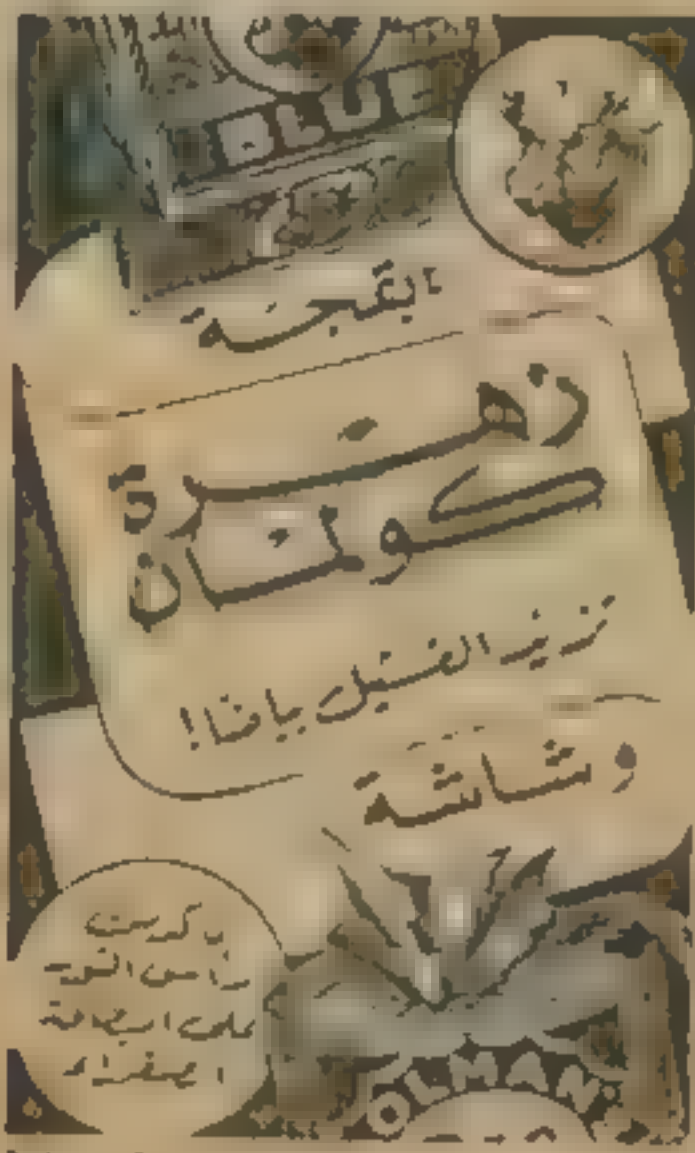 BLUE
البهجة
زهرة
كولمان
تزيد الغسيل بياضا!
وبشاشة
ماركة
رأس الثور
على البطاقة
الصفراء
OLMAN